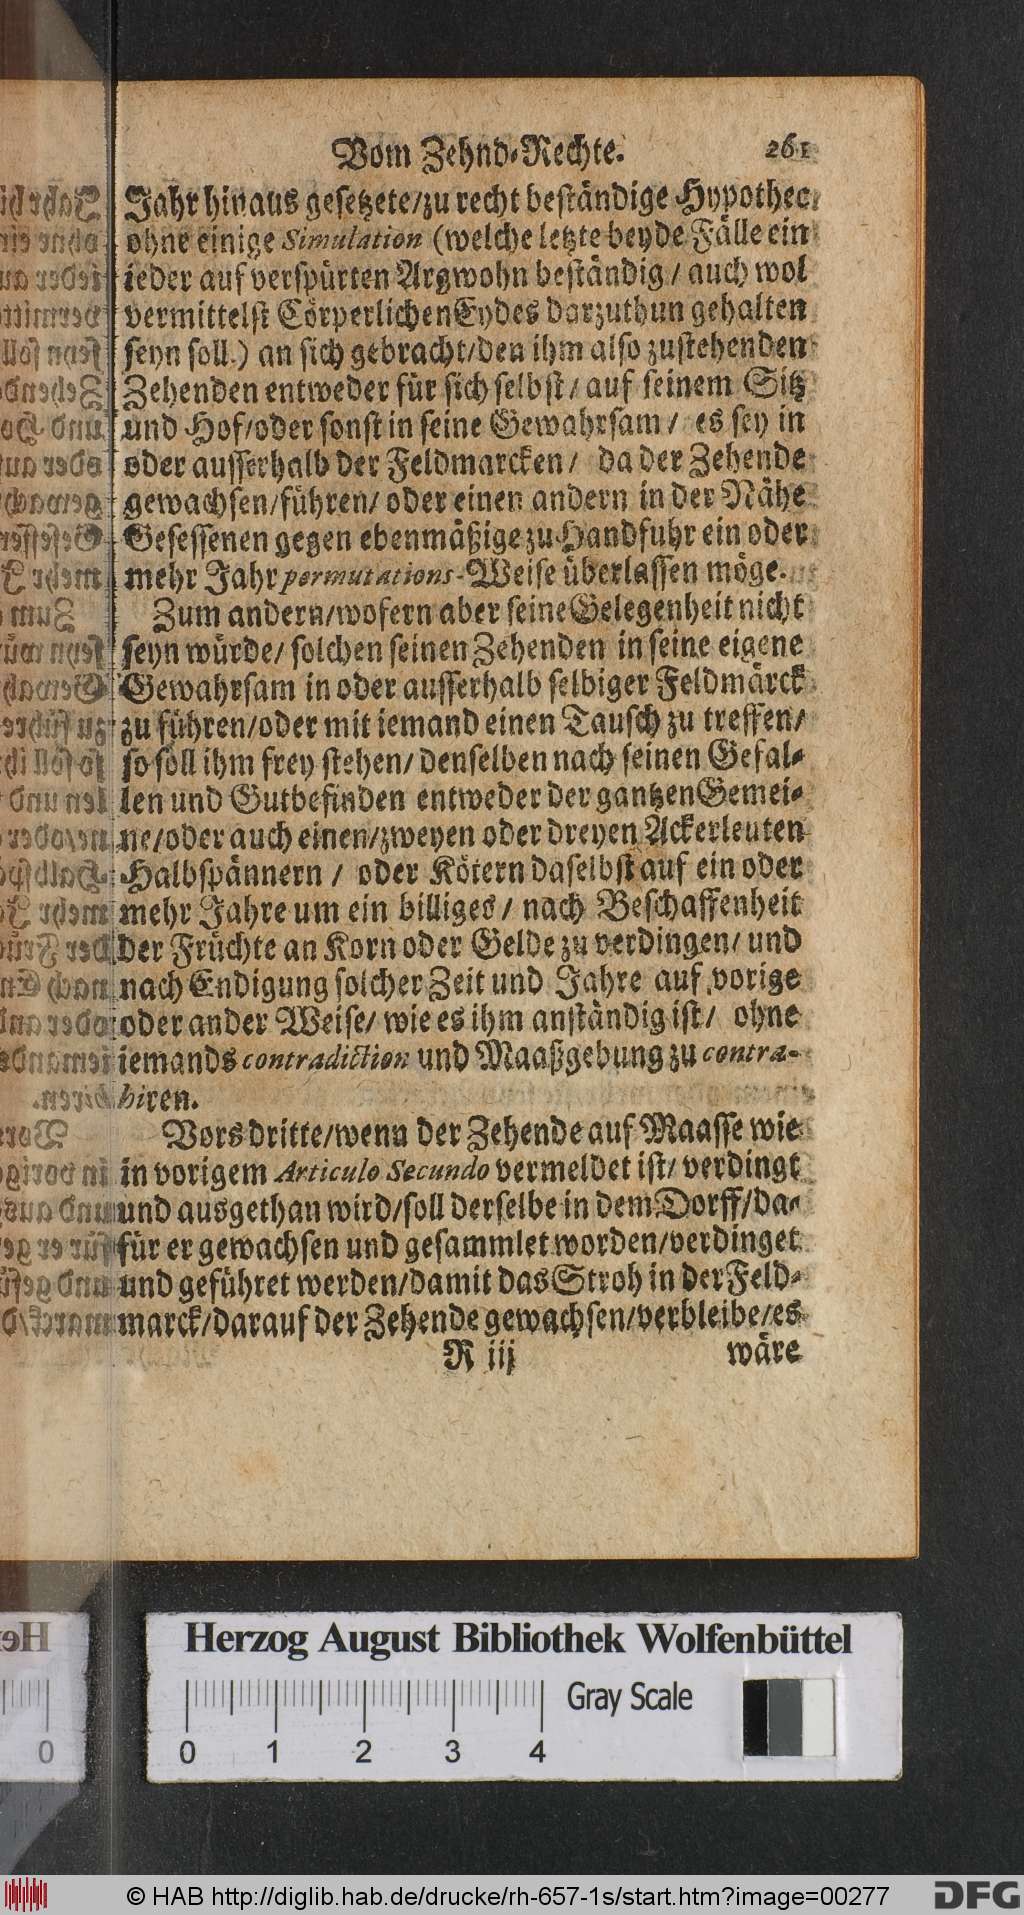 Vom Zehnd-Rechte. 261
Jahr hinaus gesetzete/zu recht beständige Hypothec
ohne einige Simulation (welche letzte beyde Fälle ein
ieder auf verspürten Argwohn beständig / auch wol
vermittelst Cörperlichen Eydes darzuthun gehalten
seyn soll.) an sich gebracht/den ihm also zustehenden
Zehenden entweder für sich selbst / auf seinem Sitz
und Hof/oder sonst in seine Gewahrsam / es sey in
oder ausserhalb der Feldmarcken / da der Zehende
gewachsen/führen/ oder einen andern in der Nähe
Gesessenen gegen ebenmäßige zu Handfuhr ein oder
mehr Jahr permutations-Weise überlassen möge.
Zum andern/wofern aber seine Gelegenheit nicht
seyn würde/ solchen seinen Zehenden in seine eigene
Gewahrsam in oder ausserhalb selbiger Feldmarck
zu führen/oder mit iemand einen Tausch zu treffen/
so soll ihm frey stehen/ denselben nach seinen Gefal-
len und Gutbefinden entweder der gantzen Gemei-
ne/oder auch einen/zweyen oder dreyen Ackerleuten
Halbspännern / oder Kötern daselbst auf ein oder
mehr Jahre um ein billiges / nach Beschaffenheit
der Früchte an Korn oder Gelde zu verdingen/ und
nach Endigung solcher Zeit und Jahre auf vorige
oder ander Weise/ wie es ihm anständig ist/ ohne
iemands contradiction und Maaßgebung zu contra-
hiren.
Vors dritte/wenn der Zehende auf Maasse wie
in vorigem Articulo Secundo vermeldet ist/ verdingt
und ausgethan wird/soll derselbe in dem Dorff/da-
für er gewachsen und gesammlet worden/verdinget
und geführet werden/damit das Stroh in der Feld-
marck/darauf der Zehende gewachsen/verbleibe/es
R iij wäre
Herzog August Bibliothek Wolfenbüttel
0 1 2 3 4 Gray Scale
© HAB http://diglib.hab.de/drucke/rh-657-1s/start.htm?image=00277 DFG